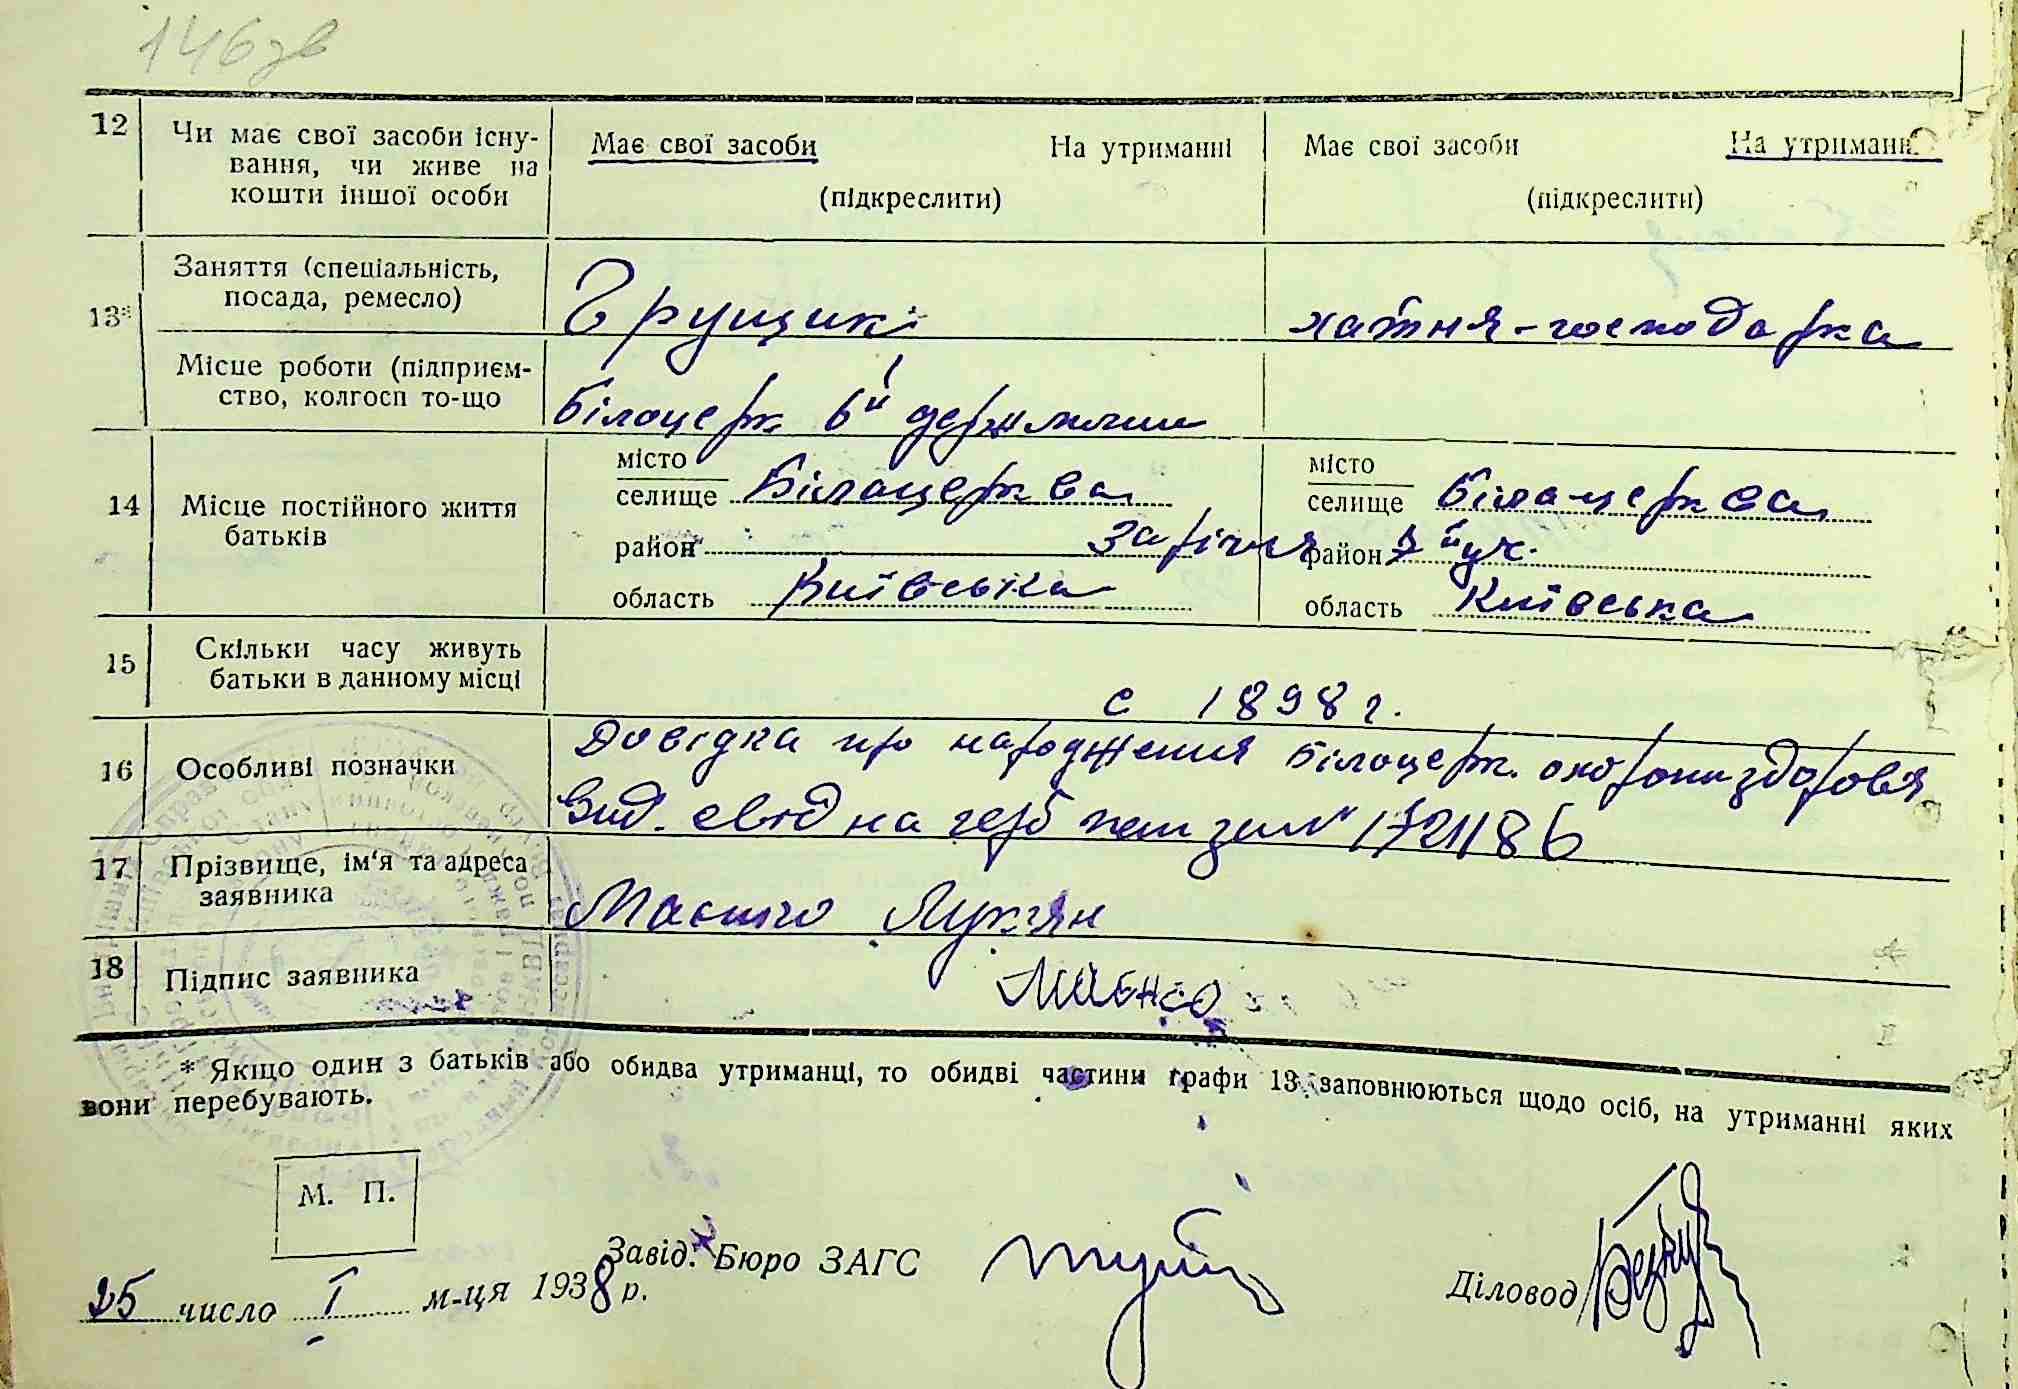 146зв
12 Чи має свої засоби існу-
вання, чи живе на
кошти іншої особи
Має свої засоби На утриманні
(підкреслити)
Має свої засоби На утриманні
(підкреслити)
13* Заняття (спеціальність,
посада, ремесло)
Грущик
хатня-господарка
Місце роботи (підприєм-
ство, колгосп то-що
Білоцерк 6й держмлин
14 Місце постійного життя
батьків
місто
селище Білацерква
район Заріччя
область Київська
місто
селище Білацерква
район 7й уч.
область Київська
15 Скільки часу живуть
батьки в данному місці
с 1898 г.
16 Особливі позначки
Довідка про народження Білоцерк. охорони здоровя
Вид. свід на герб
17 Прізвище, ім'я та адреса
заявника
Лукян
18 Підпис заявника
* Якщо один з батьків або обидва утриманці, то обидві частини графи 13 заповнюються щодо осіб, на утриманні яких
вони перебувають.
М. П.
25 число I м-ця 1938 р.
Завід. Бюро ЗАГС
Діловод